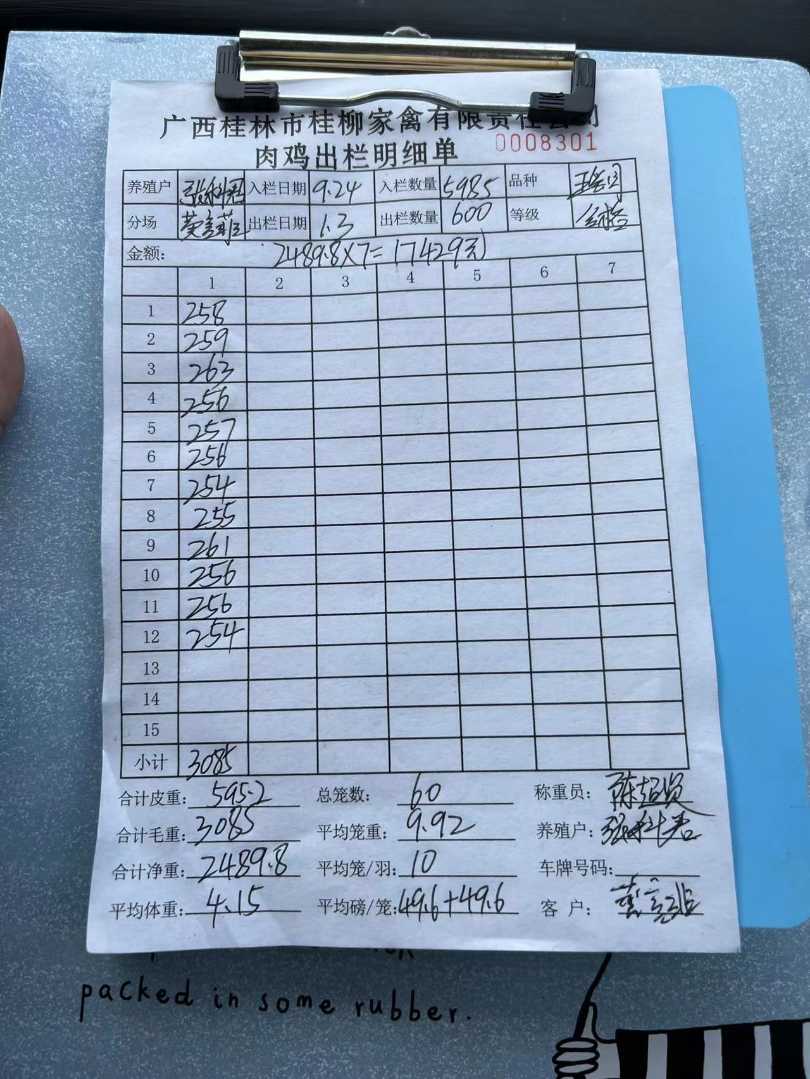 广西桂林市桂柳家禽有限责任公司
肉鸡出栏明细单 0008301
养殖户 入栏日期 9.24 入栏数量 5985 品种
分场 出栏日期 1.3 出栏数量 600 等级 合格
金额: 2489.8×7=17429元
1 2 3 4 5 6 7
1 258
2 259
3 263
4 256
5 257
6 256
7 254
8 255
9 261
10 256
11 256
12 254
13
14
15
小计 3085
合计皮重: 595.2 总笼数: 60 称重员:
合计毛重: 3085 平均笼重: 9.92 养殖户:
合计净重: 2489.8 平均笼/羽: 10 车牌号码:
平均体重: 4.15 平均磅/笼: 49.6+49.6 客 户:
packed in some rubber.